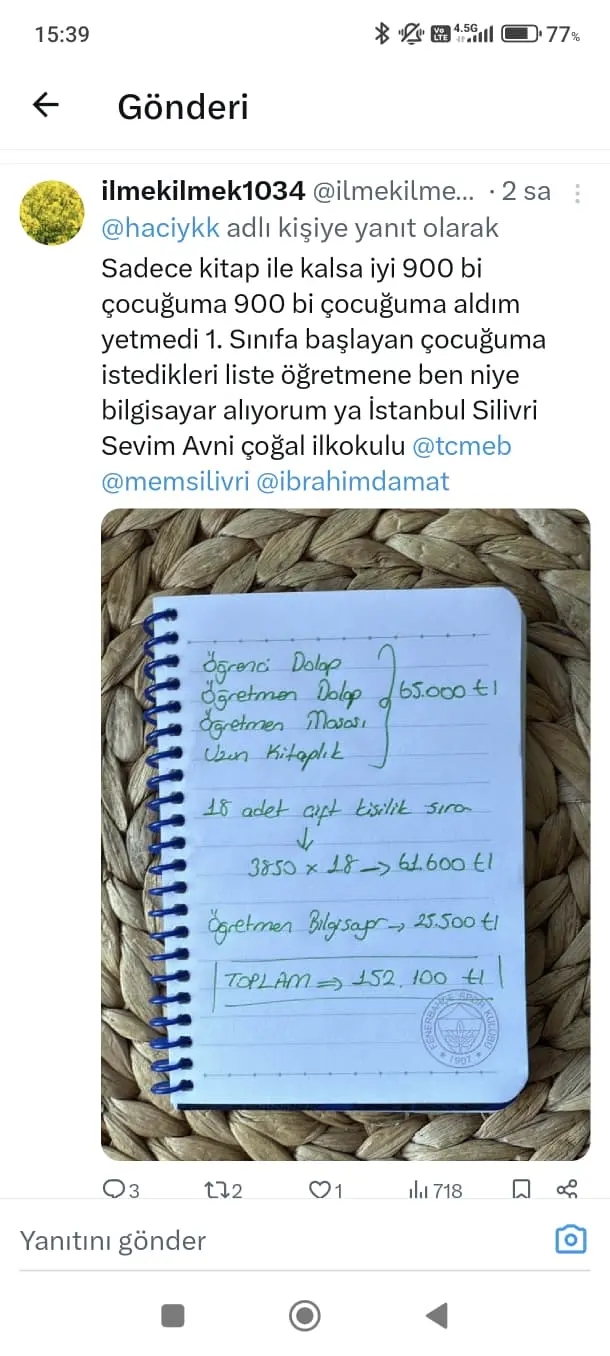 15:39
Vo LTE 4.5G 77%
Gönderi
ilmekilmek1034 @ilmekilme... · 2 sa
@haciykk adlı kişiye yanıt olarak
Sadece kitap ile kalsa iyi 900 bi
çocuğuma 900 bi çocuğuma aldım
yetmedi 1. Sınıfa başlayan çocuğuma
istedikleri liste öğretmene ben niye
bilgisayar alıyorum ya İstanbul Silivri
Sevim Avni çoğal ilkokulu @tcmeb
@memsilivri @ibrahimdamat
Öğrenci Dolap
Öğretmen Dolap 65.000 tl
Öğretmen Masası
Uzun Kitaplık
18 adet çift kişilik sıra
↓
3850 x 18 → 61.600 tl
Öğretmen Bilgisayar → 25.500 tl
TOPLAM ⇒ 152.100 tl
FENERBAHÇE SPOR KULÜBÜ
★ 1907 ★
3 2 1 718
Yanıtını gönder